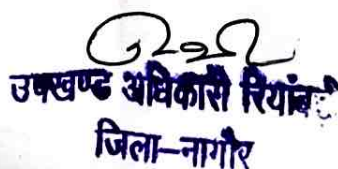 उपखण्ड अधिकारी रियांब
जिला–नागौर